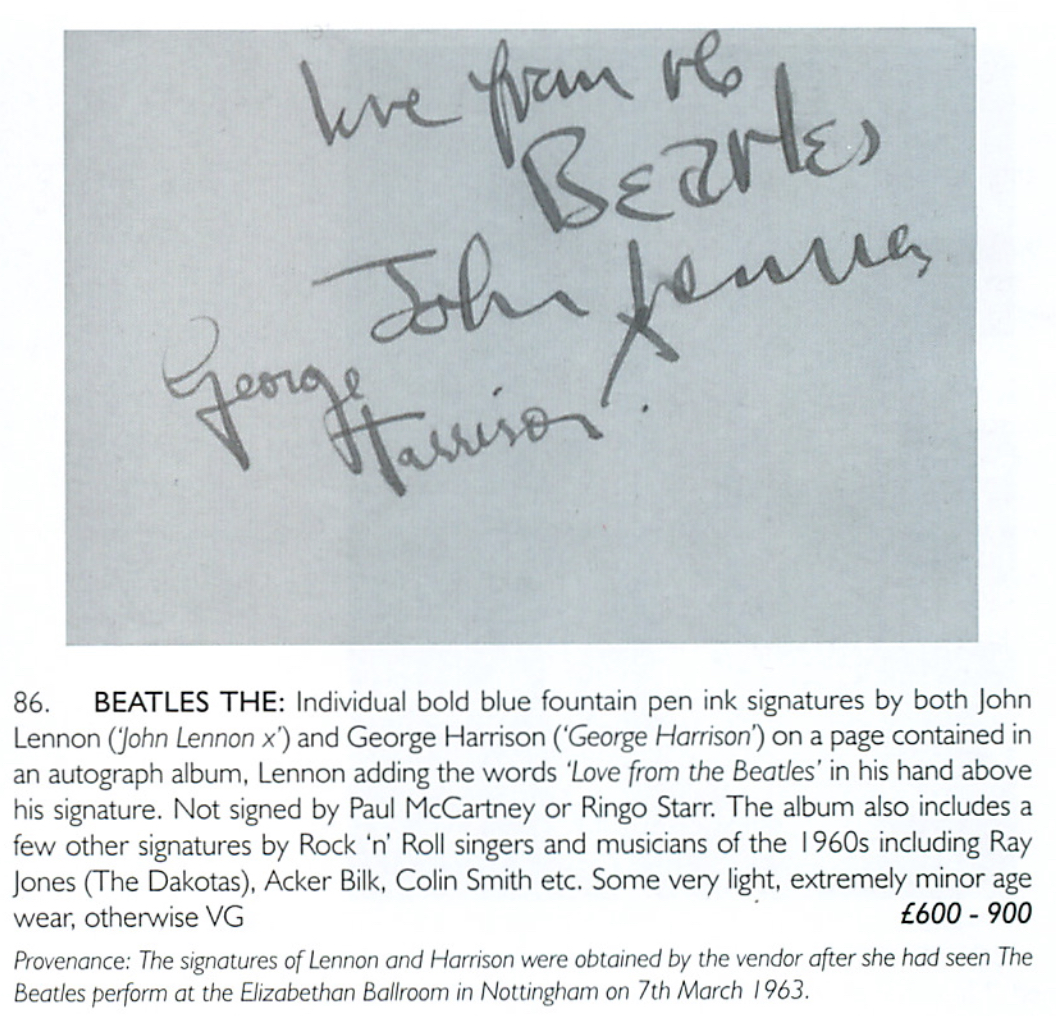 love from the
Beatles
John Lennon x
George
Harrison
86. BEATLES THE: Individual bold blue fountain pen ink signatures by both John
Lennon (‘John Lennon x’) and George Harrison (‘George Harrison’) on a page contained in
an autograph album, Lennon adding the words ‘Love from the Beatles’ in his hand above
his signature. Not signed by Paul McCartney or Ringo Starr. The album also includes a
few other signatures by Rock ‘n’ Roll singers and musicians of the 1960s including Ray
Jones (The Dakotas), Acker Bilk, Colin Smith etc. Some very light, extremely minor age
wear, otherwise VG £600 - 900
Provenance: The signatures of Lennon and Harrison were obtained by the vendor after she had seen The
Beatles perform at the Elizabethan Ballroom in Nottingham on 7th March 1963.